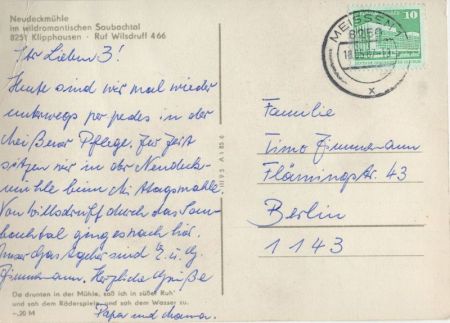 Neudeckmühle
im wildromantischen Saubachtal
8251 Klipphausen · Ruf Wilsdruff 466
Ihr Lieben 3!
Heute sind wir mal wieder
unterwegs per pedes in der
Meißner Pflege. Zur Zeit
sitzen wir in der Neudeck-
mühle beim Mittagsmahle.
Von Wilsdruff durch das Sau-
bachtal ging es nach hier.
Unser Gastgeber sind E. u. G.
Zimmermann. Herzliche Grüße
Papa und Mama.
Da drunten in der Mühle, saß ich in süßer Ruh'
und sah dem Räderspiele und sah dem Wasser zu.
–,20 M
III 9 5 A 1 85 6
MEISSEN
8250
10
x
Familie
Timo Zimmermann
Flämingstr. 43
Berlin
1143